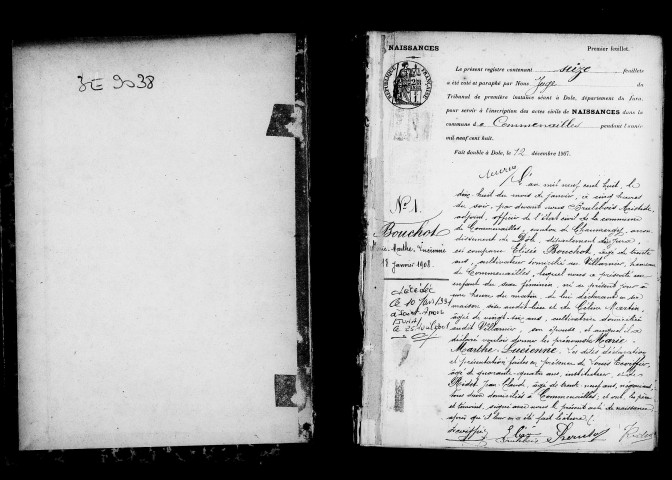 3E 9038
NAISSANCES
Premier feuillet.
Le présent registre contenant seize feuillets
a été coté et paraphé par Nous Juge du
Tribunal de première instance séant à Dole, département du Jura,
pour servir à l'inscription des actes civils de NAISSANCES dans la
commune d e Commenailles pendant l'année
mil neuf cent huit.
Fait double à Dole, le 12 décembre 1907.
RÉPUBLIQUE FRANÇAISE
N° 1.
Bouchot
Marie-Marthe-Lucienne
18 Janvier 1908.
Décédée
le 10
L'an mil neuf cent huit, le
dix huit du mois de janvier, à cinq heures
du soir, par devant nous
adjoint, officier de l'état civil de la commune
de Commenailles, canton de Chaumergy, arron
dissement de Dôle, département du Jura,
est comparu Elisée Bouchot, âgé de trente
ans, cultivateur domicilié au Villarnin, hameau
de Commenailles, lequel nous a présenté un
enfant du sexe féminin, né ce présent jour à
une heure du matin, de lui déclarant en sa
maison sise audit lieu et de Céline Martin,
âgée de vingt-six ans, cultivatrice domiciliée
audit Villarnin, son épouse, et auquel il a
déclaré vouloir donner les prénoms Marie
Marthe-Lucienne. Les dites déclaration
et présentation faites en présence de Louis
âgé de quarante-quatre ans, instituteur, et de
Ridet Jean-Claude, âgé de trente neuf ans, négociant,
tous deux domiciliés à Commenailles, et ont, les père
et témoins, signé avec nous le présent acte de naissance
après qu'il leur en a été fait lecture.